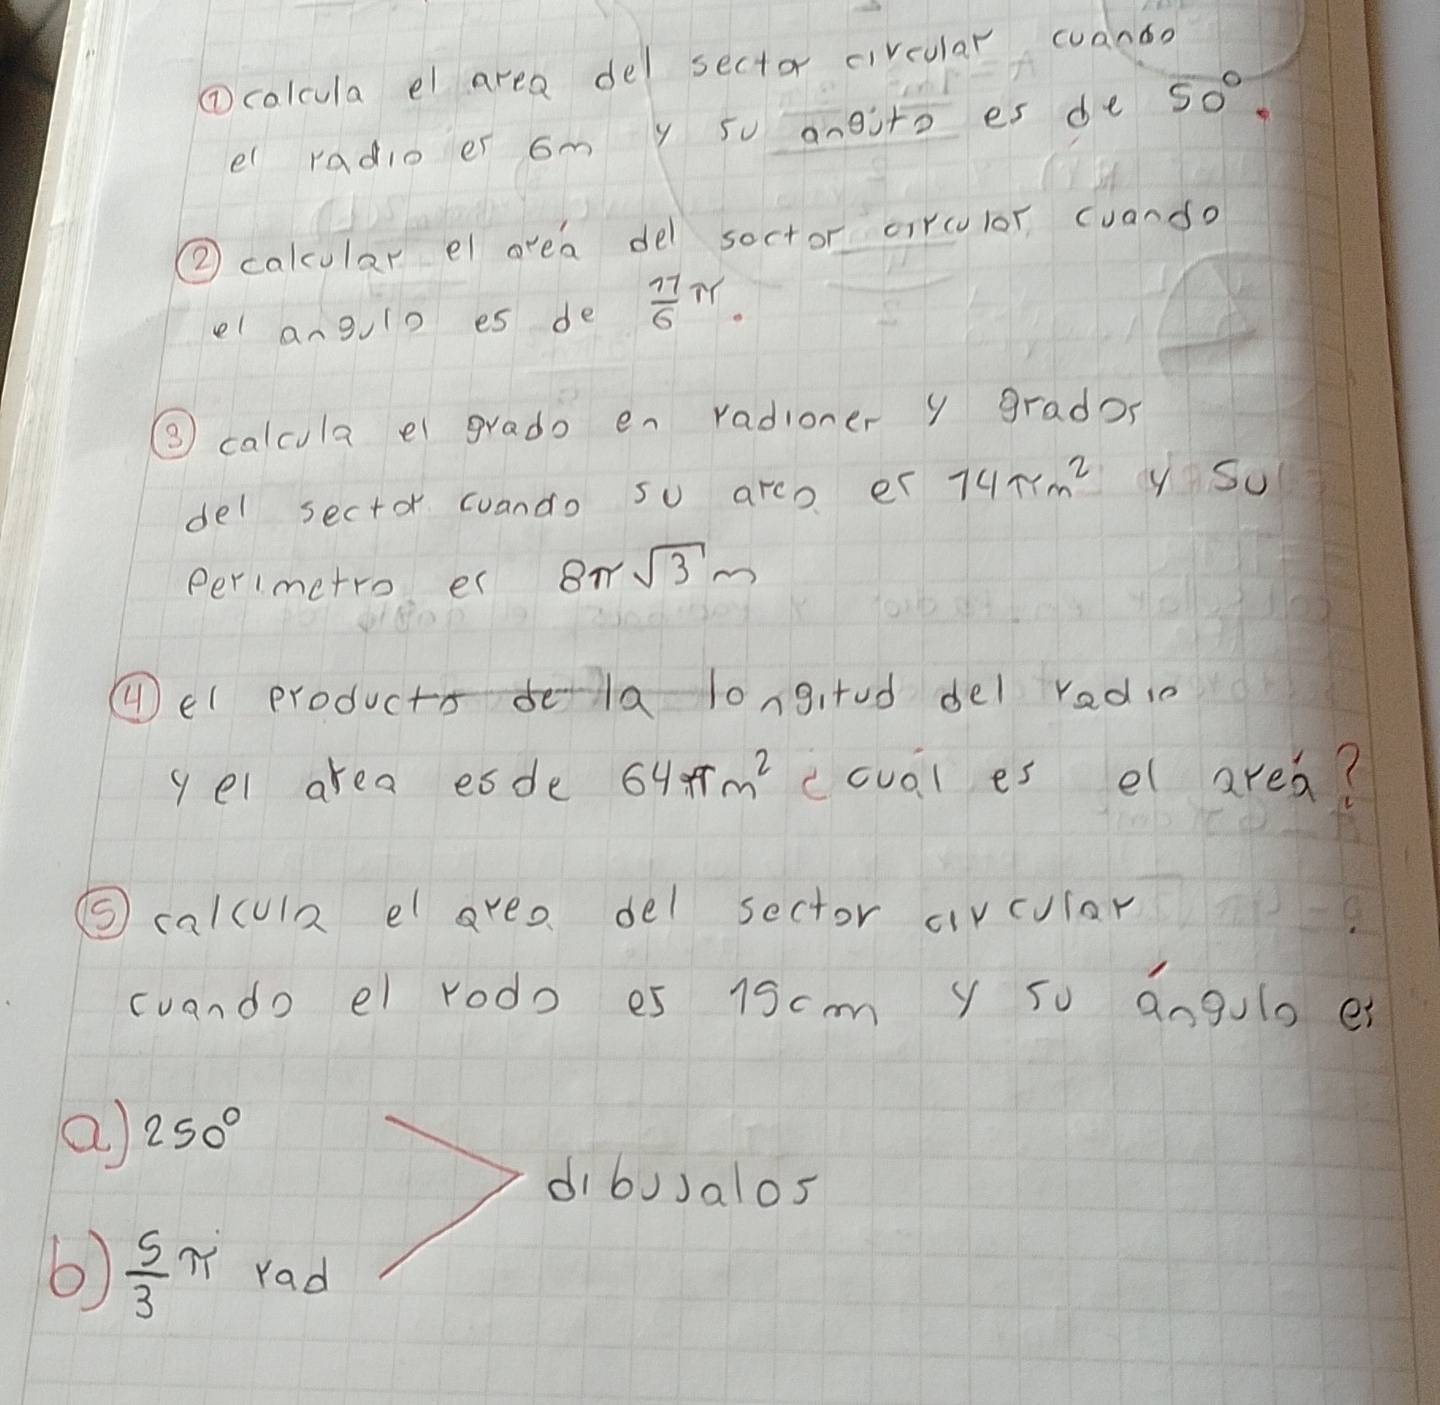 ① calcula el area del sector circular cuando
el radio es 6m y su angulo es de 50°.
② calcular el areá del soctor circular cuando
el angulo es de 11/6 π.
③ calcula el grado en radiones y grados
del sector cuando su area es 14πm² y su
Perimetro es 8π√3 m
④ el producto de la longitud del radio
y el area es de 64πm² ¿cuál es el areá?
⑤ calcula el area del sector circular
cuando el rodo es 15cm y su ángulo es
a) 250°
dibujalos
b) 5/3 π rad